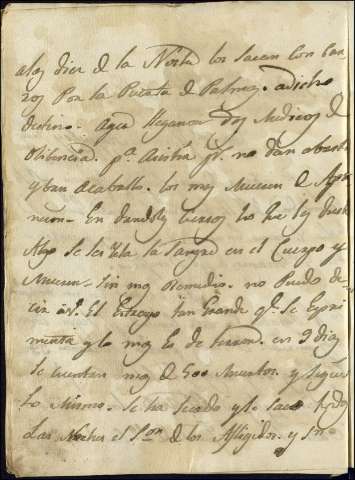 alas diez de la Noche los sacan con Car
ros Por la Puerta de Palmas. adicho
destino. Aqui llegaron dos Medicos de
Olibencia. pª Asistir pr. no dan abasto
y ban acaballo. los mas Mueren de
En dandoles
se les Yela la Sangre en el Cuerpo y
Mueren. Sin mas Remedio. no Puedo de
cir a V. El Estrago tan Grande qe. Se Espri
menta y lo mas Es de terror. en 9 dias
se cuentan mas de 500 Muertos. y sigue
lo Mismo. Se ha sacado y se saca todas
Las Noches el Sor. de los Afligidos. y Sn